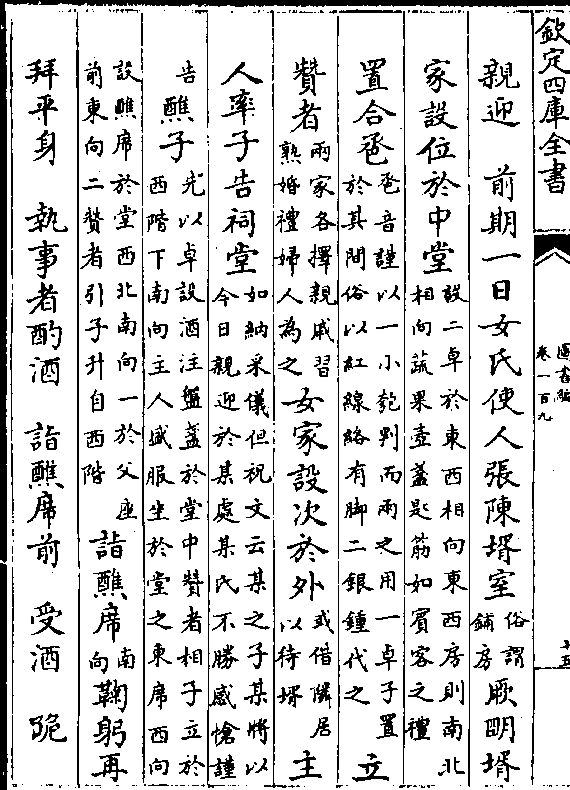 欽定四庫全書
圖書編
卷一百九
十五
親迎　前期一日女氏使人張陳壻室俗謂鋪房厥明壻
家設位於中堂設二卓於東西相向東西房則南北相向蔬果壺盞匙筯如賓客之禮
置合卺卺音謹以一小匏判而兩之用一卓子置於其間俗以紅線絡有脚二銀鍾代之立
贊者兩家各擇親戚習熟婚禮婦人為之女家設次於外或借隣居以待壻主
人率子告祠堂如納采儀但祝文云某之子某將以今日親迎於某處某氏不勝感愴謹
告醮子先以卓設酒注盤盞於堂中贊者相子立於西階下南向主人盛服坐於堂之東席西向
設醮席於堂西北南向一於父座前東向二贊者引子升自西階詣醮席南向鞠躬再
拜平身　執事者酌酒　詣醮席前　受酒　跪